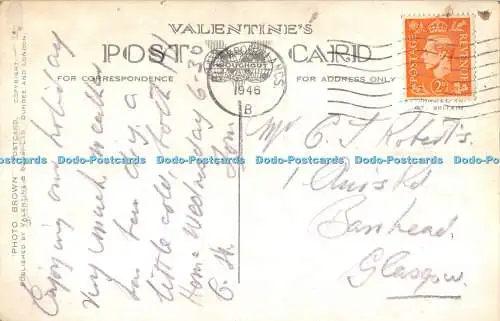 VALENTINE'S
POST CARD
FOR CORRESPONDENCE
FOR ADDRESS ONLY
1946
POSTAGE REVENUE
PHOTO BROWN POSTCARD. COPYRIGHT.
PUBLISHED BY VALENTINE & SONS, LTD. DUNDEE AND LONDON.
Enjoying our holiday
very much, weather
has been dry, a
little cold, both
Home Wednesday 6.30
Mr C. J. Roberts.
1 Rd
Barrhead,
Glasgow.
Dodo-Postcards.com Dodo-Postcards.com Dodo-Postcards.com Dodo-Postcards.com Dodo-Postcards.com Dodo-Postcards.com